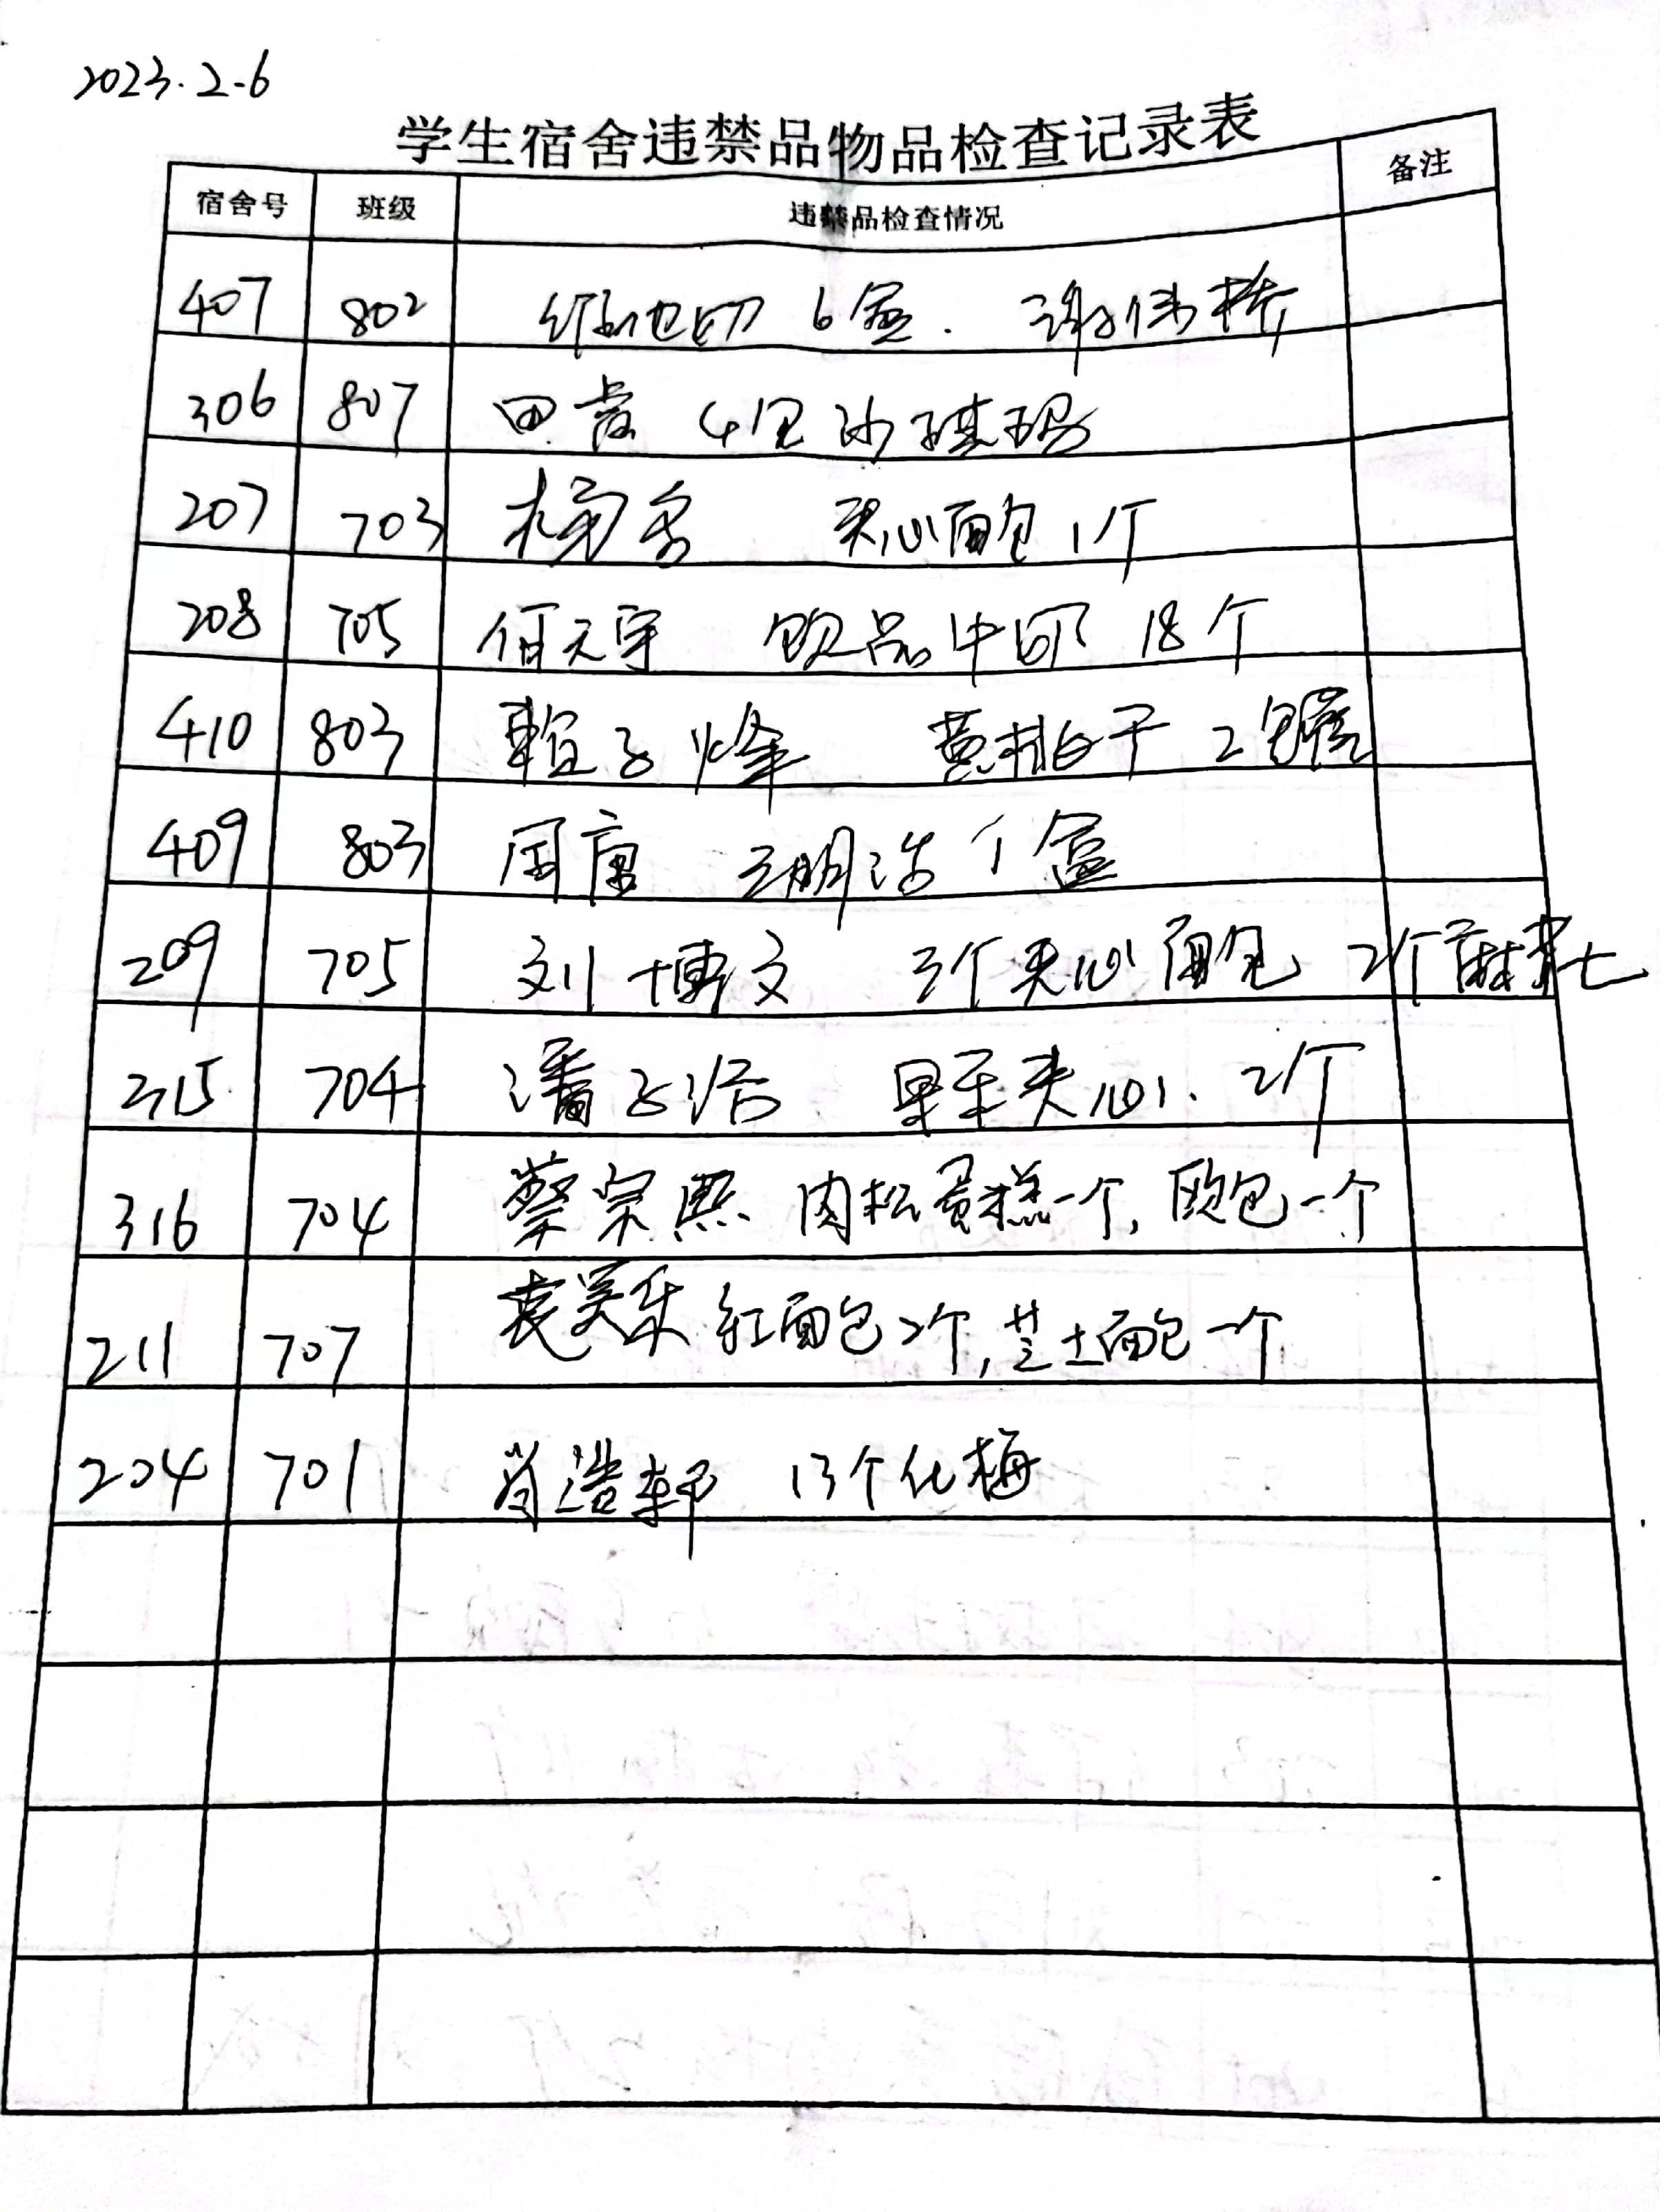 2023.2-6
学生宿舍违禁品物品检查记录表
宿舍号 班级 违禁品检查情况 备注
407 802 6盒. 谢伟桥
306 807 4包 沙琪玛
207 703 杨 夹心面包 1个
208 705 何天宇 饮品牛奶 18个
410 803 赖子烽 黄桃干 2包
409 803 周康 三明治 1盒
209 705 刘博文 3个夹心面包 2个
315 704 潘子浩 夹心 2个
316 704 蔡宗熙 肉松蛋糕一个, 欧包一个
211 707 袁昊乐 红面包2个, 芝士面包一个
204 701 肖浩轩 13个化梅